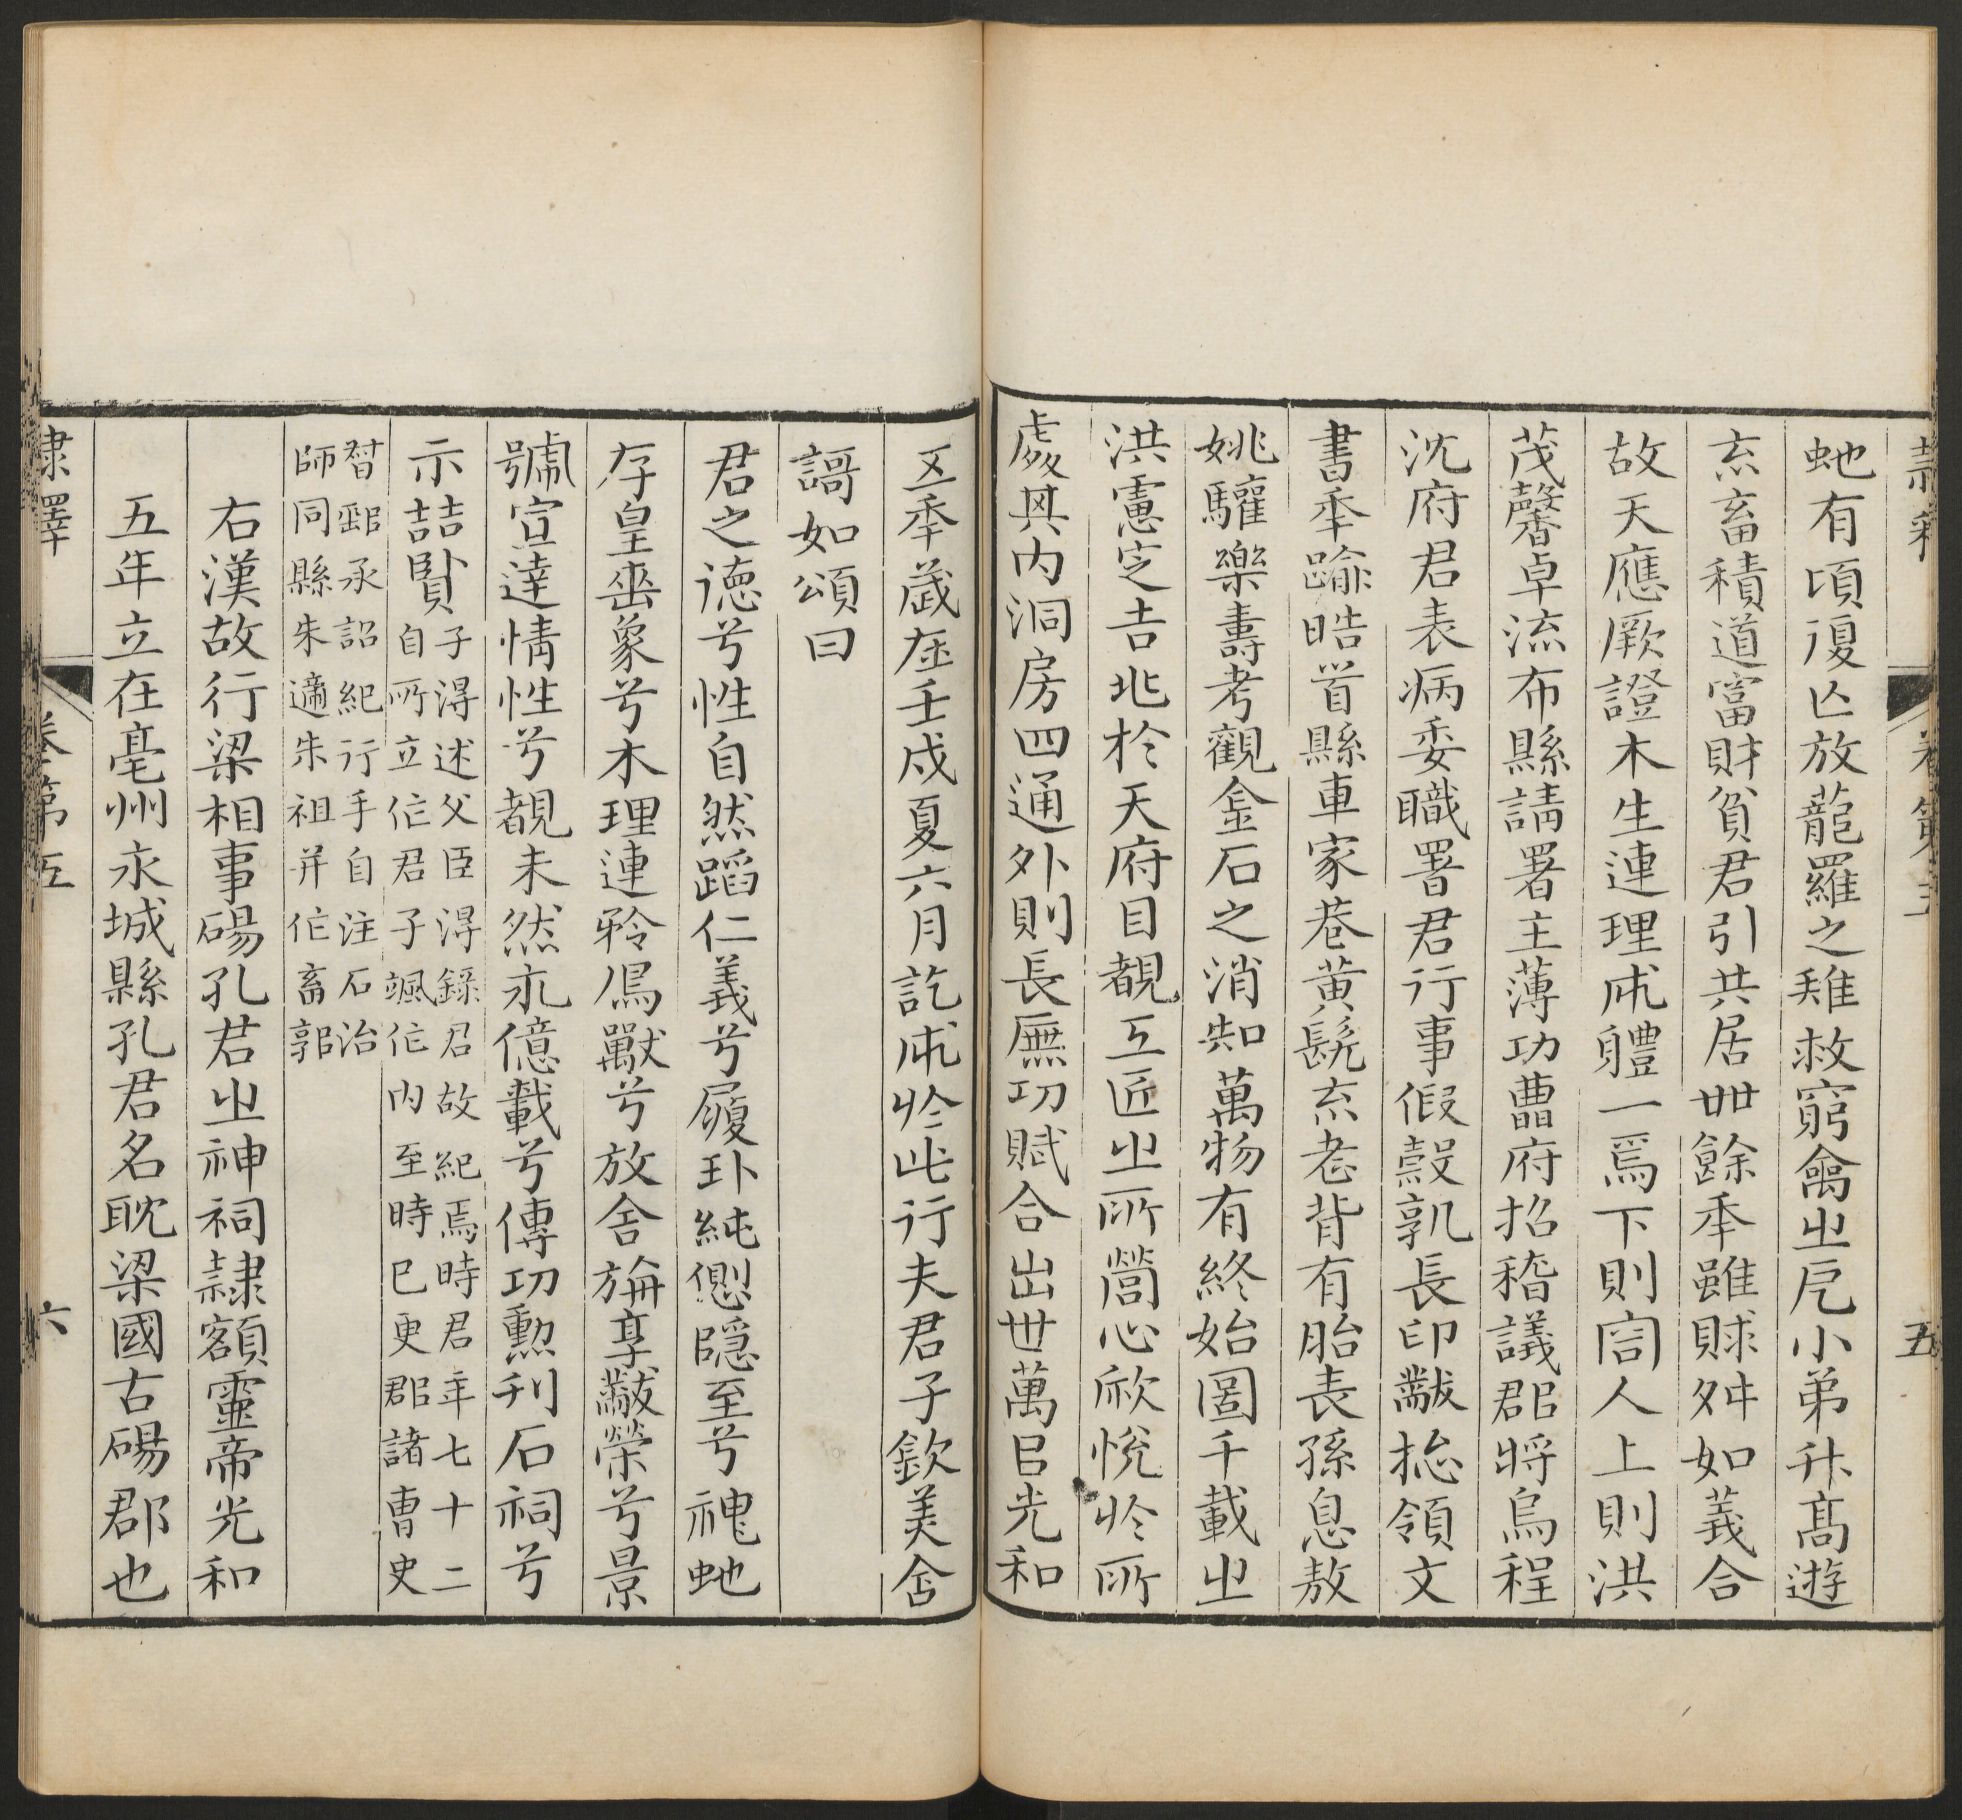 虵有頃復亾放蘢羅之雉救窮禽㞢厄小弟升髙遊
亦畜積道富財貧君引共居卅餘秊雖財舛如義合
故天應厥證木生連理成軆一焉下則㝓人上則洪
茂馨卓流布縣請署主薄功曹府招稽議郡將烏程
沈府君表病委職署君行事假榖孰長印黻揔領文
書秊踰皓首縣車家巷黄髮亦老背有胎表孫息敖
姚驩樂壽考觀金石之消知萬物有終始圖千載㞢
洪慮定吉兆於天府目覩工匠㞢所營心欣悅於所
處其内洞房四通外則長廡功賦合出卋萬㠯光和
五秊歲在壬戌夏六月訖成於此行夫君子欽美舍
謌如頌曰
君之德兮性自然蹈仁義兮履璞純恻隠至兮神虵
存皇𡶍象兮木理連矜鳥獸兮放舍旃享黻榮兮景
號宣達情性兮覩未然永億載兮傳功勲刊石祠兮
示喆賢子淂述父臣淂錄君故紀焉時君年七十二
自所立作君子颯作内至時巳更郡諸曹史
智鄧承詔紀行手自注石治
師同縣朱適朱祖并作畜郭
右漢故行梁相事碭孔君㞢神祠隷額靈帝光和
五年立在亳州永城縣孔君名耽梁國古碭郡也
隷釋 卷第五 六
卷第五 五